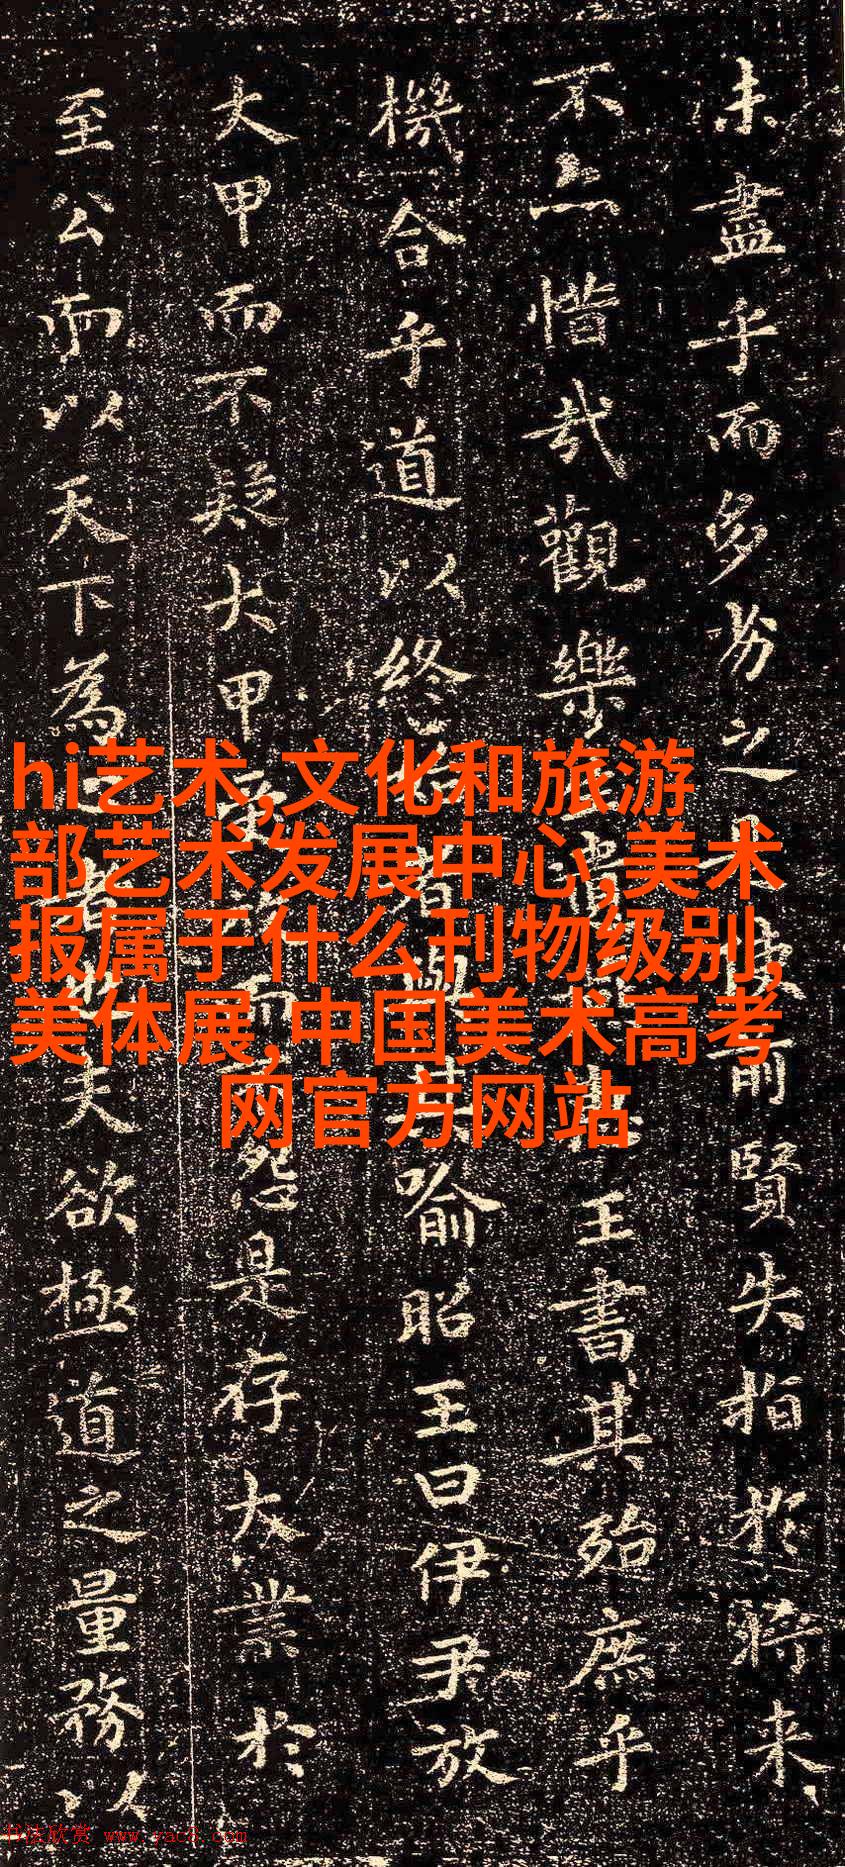 未盡乎而多劣之使前賢失指於將来
不亦惜哉觀樂生王書其殆庶乎
機合乎道以終者與其喻昭王曰伊尹放
大甲而不疑大甲受而不怨是存大業於
至公而以天下為者也夫欲極道之量務以
hi艺术,文化和旅游
部艺术发展中心,美术
报属于什么刊物级别,
美体展,中国美术高考
网官方网站
书法欣赏 www.yac8.com